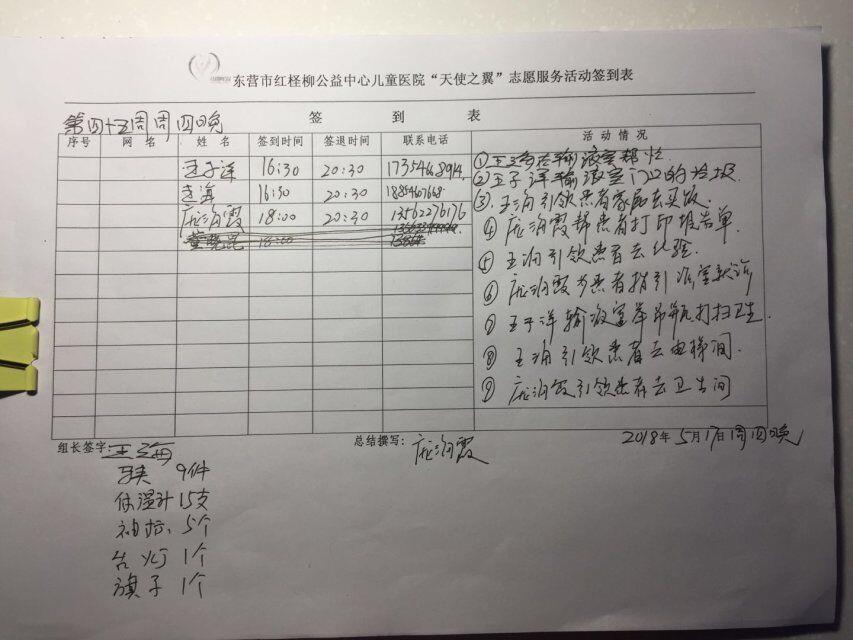 东营市红柽柳公益中心儿童医院“天使之翼”志愿服务活动签到表
签 到 表
第四十五周周四晚
序号 网名 姓名 签到时间 签退时间 联系电话 活动情况
王子洋 16:30 20:30
王海 16:30 20:30
庞海霞 18:00 20:30 13562276176
18:00
① 输液室帮忙
② 王子洋输液室门口的垃圾
③ 王海引领患者家属去买饭
④ 庞海霞帮患者打印报告单
⑤ 王海引领患者去化验
⑥ 庞海霞为患者指引派室就诊
⑦ 王子洋输液室举吊瓶打扫卫生
⑧ 王海引领患者去电梯间
⑨ 庞海霞引领患者去卫生间
组长签字:王海 总结撰写: 庞海霞 2018年5月17日周四晚
9件
体温计15支
袖标:5个
台灯1个
旗子1个